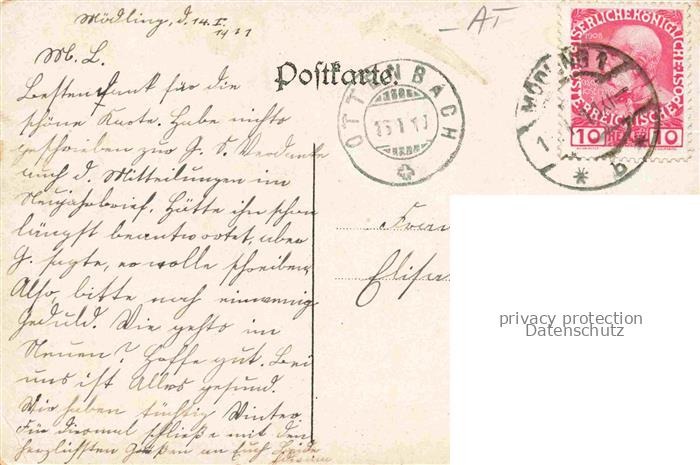 Mödling, d. 14. I.
1911
M. L.
Besten Dank für die
schöne Karte. Habe nichts
geschrieben zu G. S. Verdankte
auch d. Mitteilungen im
Neujahrbrief. Hätte ihn schon
längst beantwortet, aber
G. sagte, er wolle schreiben.
Also, bitte noch ein wenig
Geduld. Wie gehts im
Neuen? Hoffe gut. Bei
uns ist Alles gesund.
Wir haben tüchtig Winter
Für diesmal schließe mit den
herzlichsten Grüßen an Euch Beide
Postkarte.
AT
OTTENBACH
MÖDLING 1
1 * b
KAISERLICHE KÖNIGLICHE
ÖSTERREICHISCHE POST
1908
10 10
Frau
Elisa
privacy protection
Datenschutz